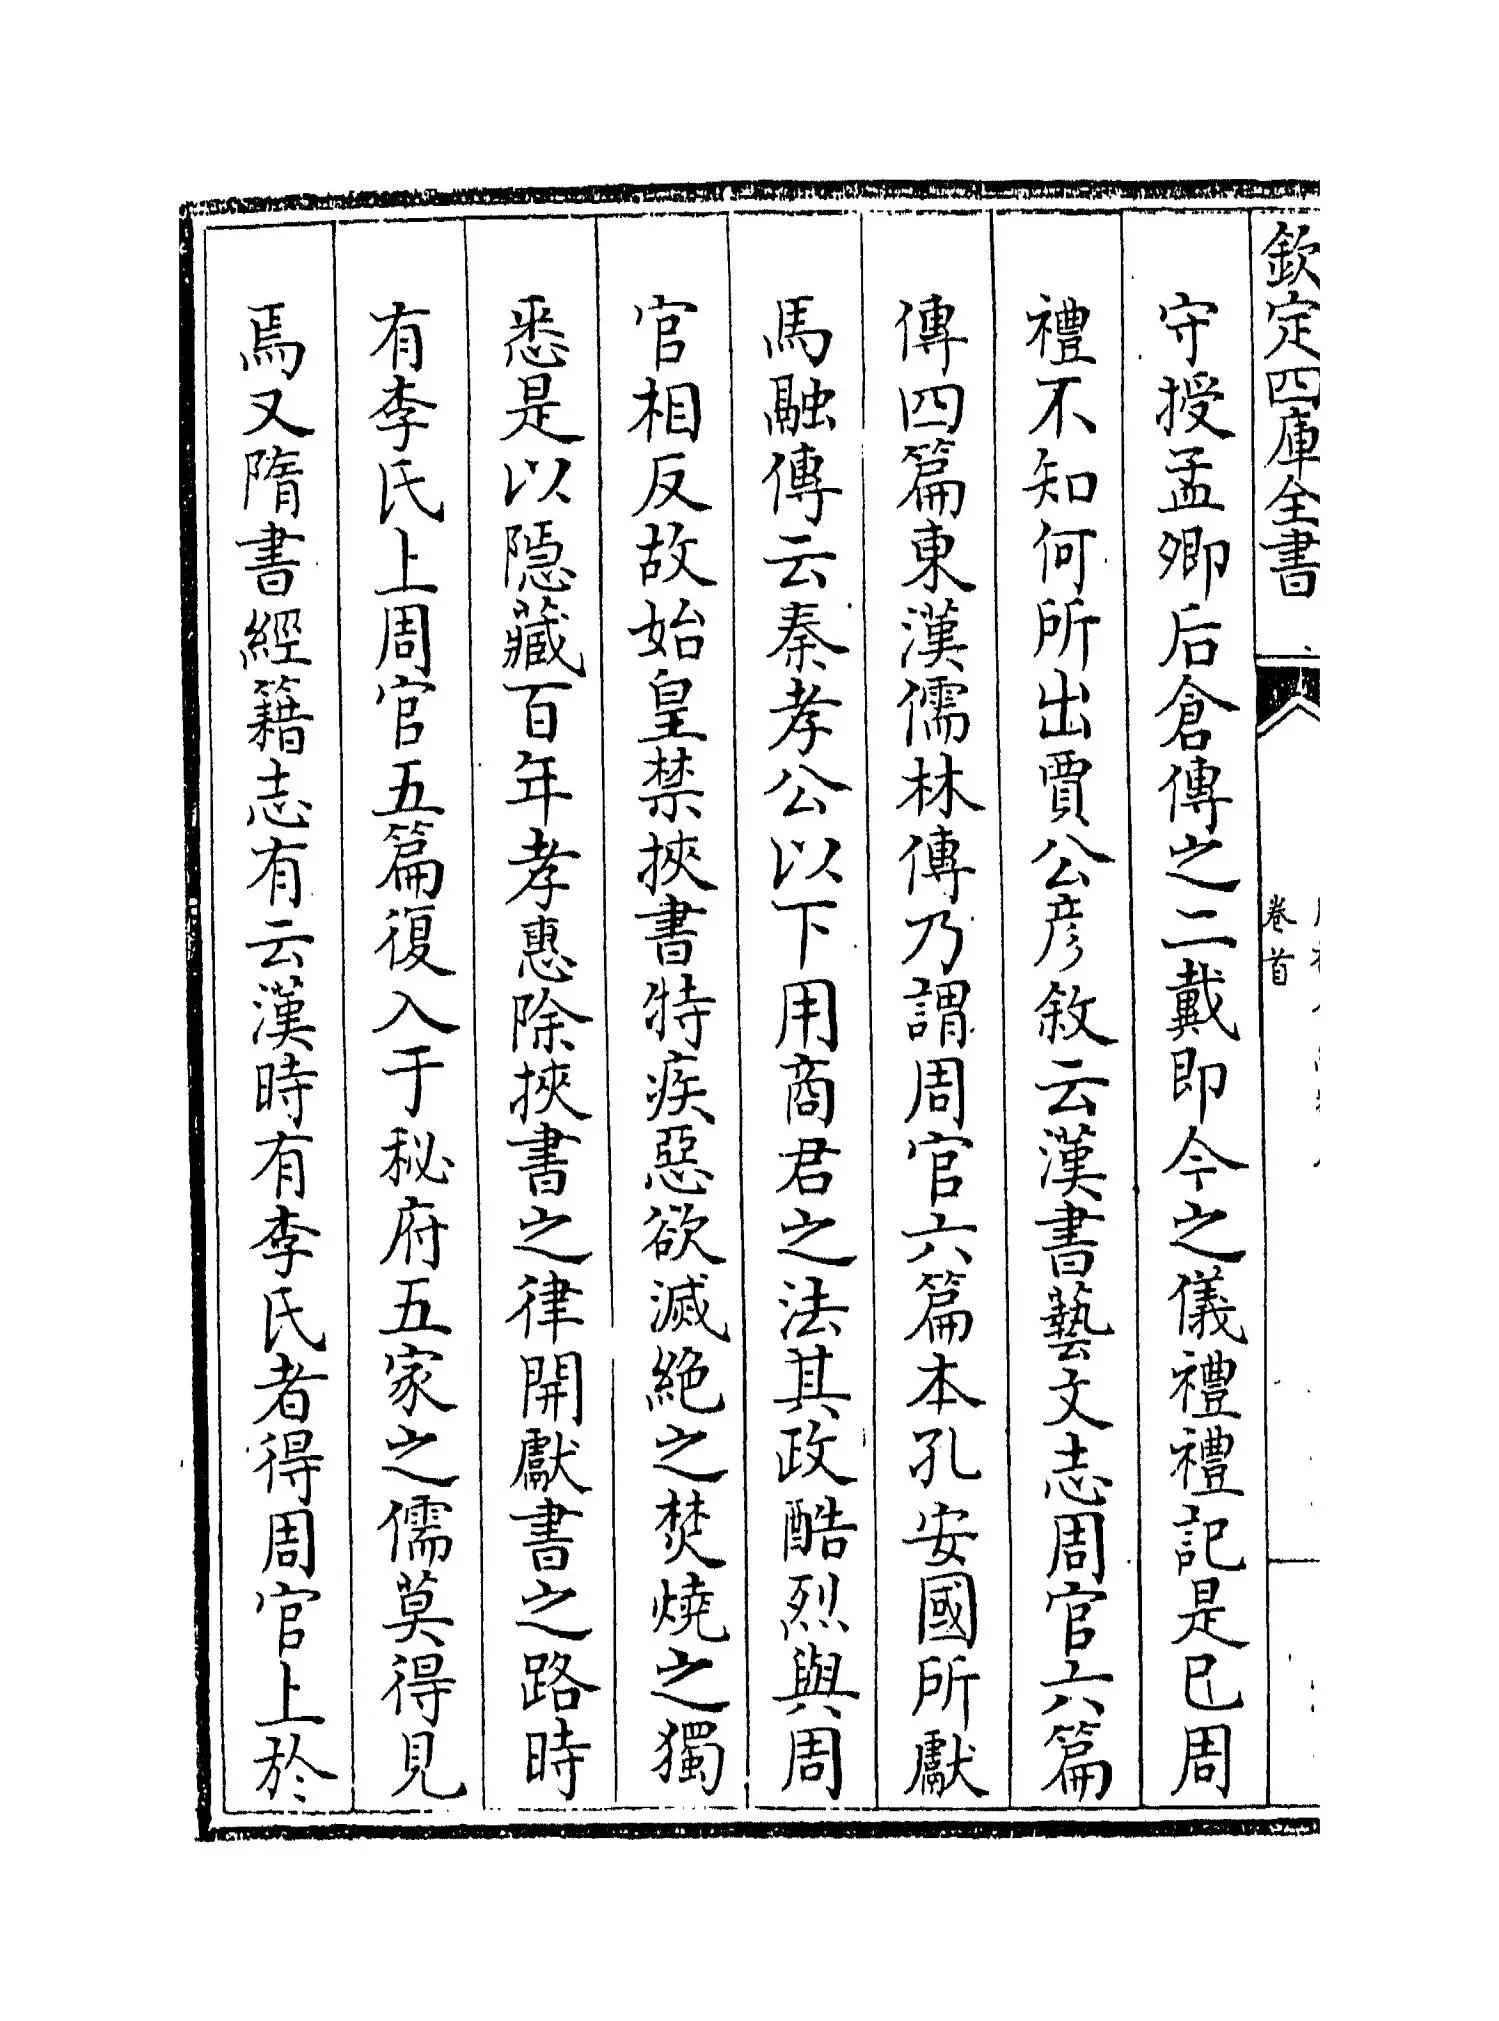 欽定四庫全書
卷首
守授孟卿后倉傳之二戴即今之儀禮禮記是已周
禮不知何所出賈公彦敘云漢書藝文志周官六篇
傳四篇東漢儒林傳乃謂周官六篇本孔安國所獻
馬融傳云秦孝公以下用商君之法其政酷烈與周
官相反故始皇禁挾書特疾惡欲滅絶之焚燒之獨
悉是以隱藏百年孝惠除挾書之律開獻書之路時
有李氏上周官五篇復入于秘府五家之儒莫得見
焉又隋書經籍志有云漢時有李氏者得周官上於